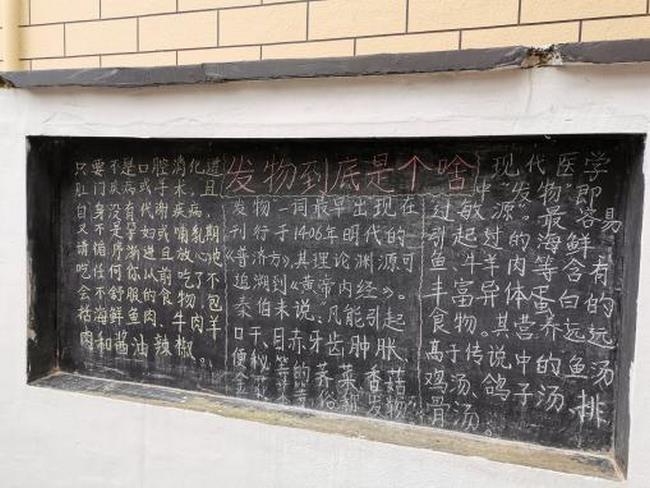 发物到底是个啥
只要不是口腔消化道
肛门疾病或手术。且
自身没有代谢疾病,
又不是孕妇或哺乳期
请循序渐进且放心地
吃任何你从前吃了不
会不舒服的食物包
括海鲜鱼肉、牛肉羊
肉和酱油辣椒。
发物一词最早出现在
刊行于1406年明代的
《普济方》,其理论渊源可
追溯到《黄帝内经》。
秦伯未说、凡能引起
口干、目赤、牙齿肿胀、
便秘等的芥菜、香菇
等俗称发物
现代医学
中"发物"即
过敏源。最容易
引起过敏的海鲜有
鱼、牛羊肉等含有
丰富异体蛋白的
食物。其营养远远
高于传说中的鱼汤
鸡汤、鸽子汤、排
骨汤。